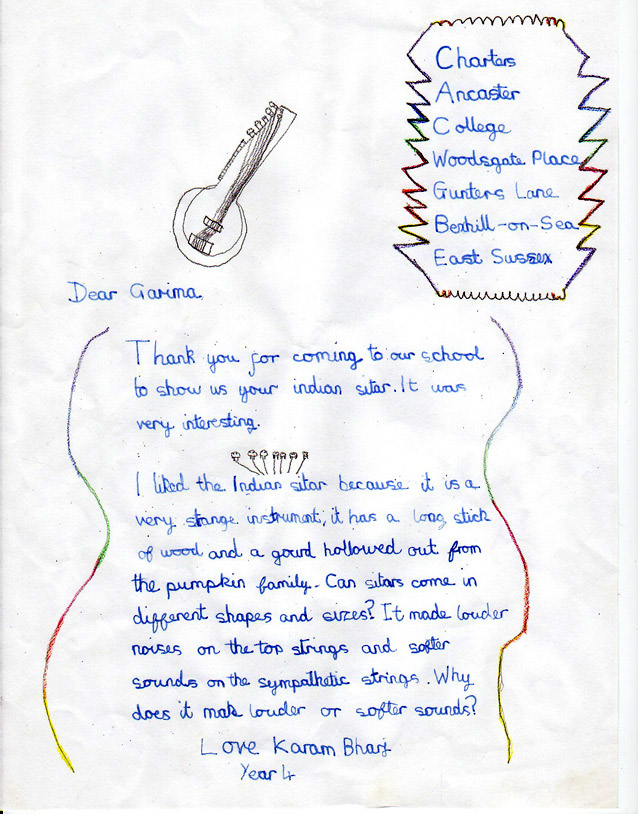 Charters
Ancaster
College
Woodsgate Place
Gunters Lane
Bexhill-on-Sea
East Sussex
Dear Garima
Thank you for coming to our school
to show us your indian sitar. It was
very interesting.
I liked the Indian sitar because it is a
very strange instrument, it has a long stick
of wood and a gourd hollowed out from
the pumpkin family. Can sitars come in
different shapes and sizes? It made louder
noises on the top strings and softer
sounds on the sympathetic strings. Why
does it make louder or softer sounds?
Love Karam Bharj
Year 4